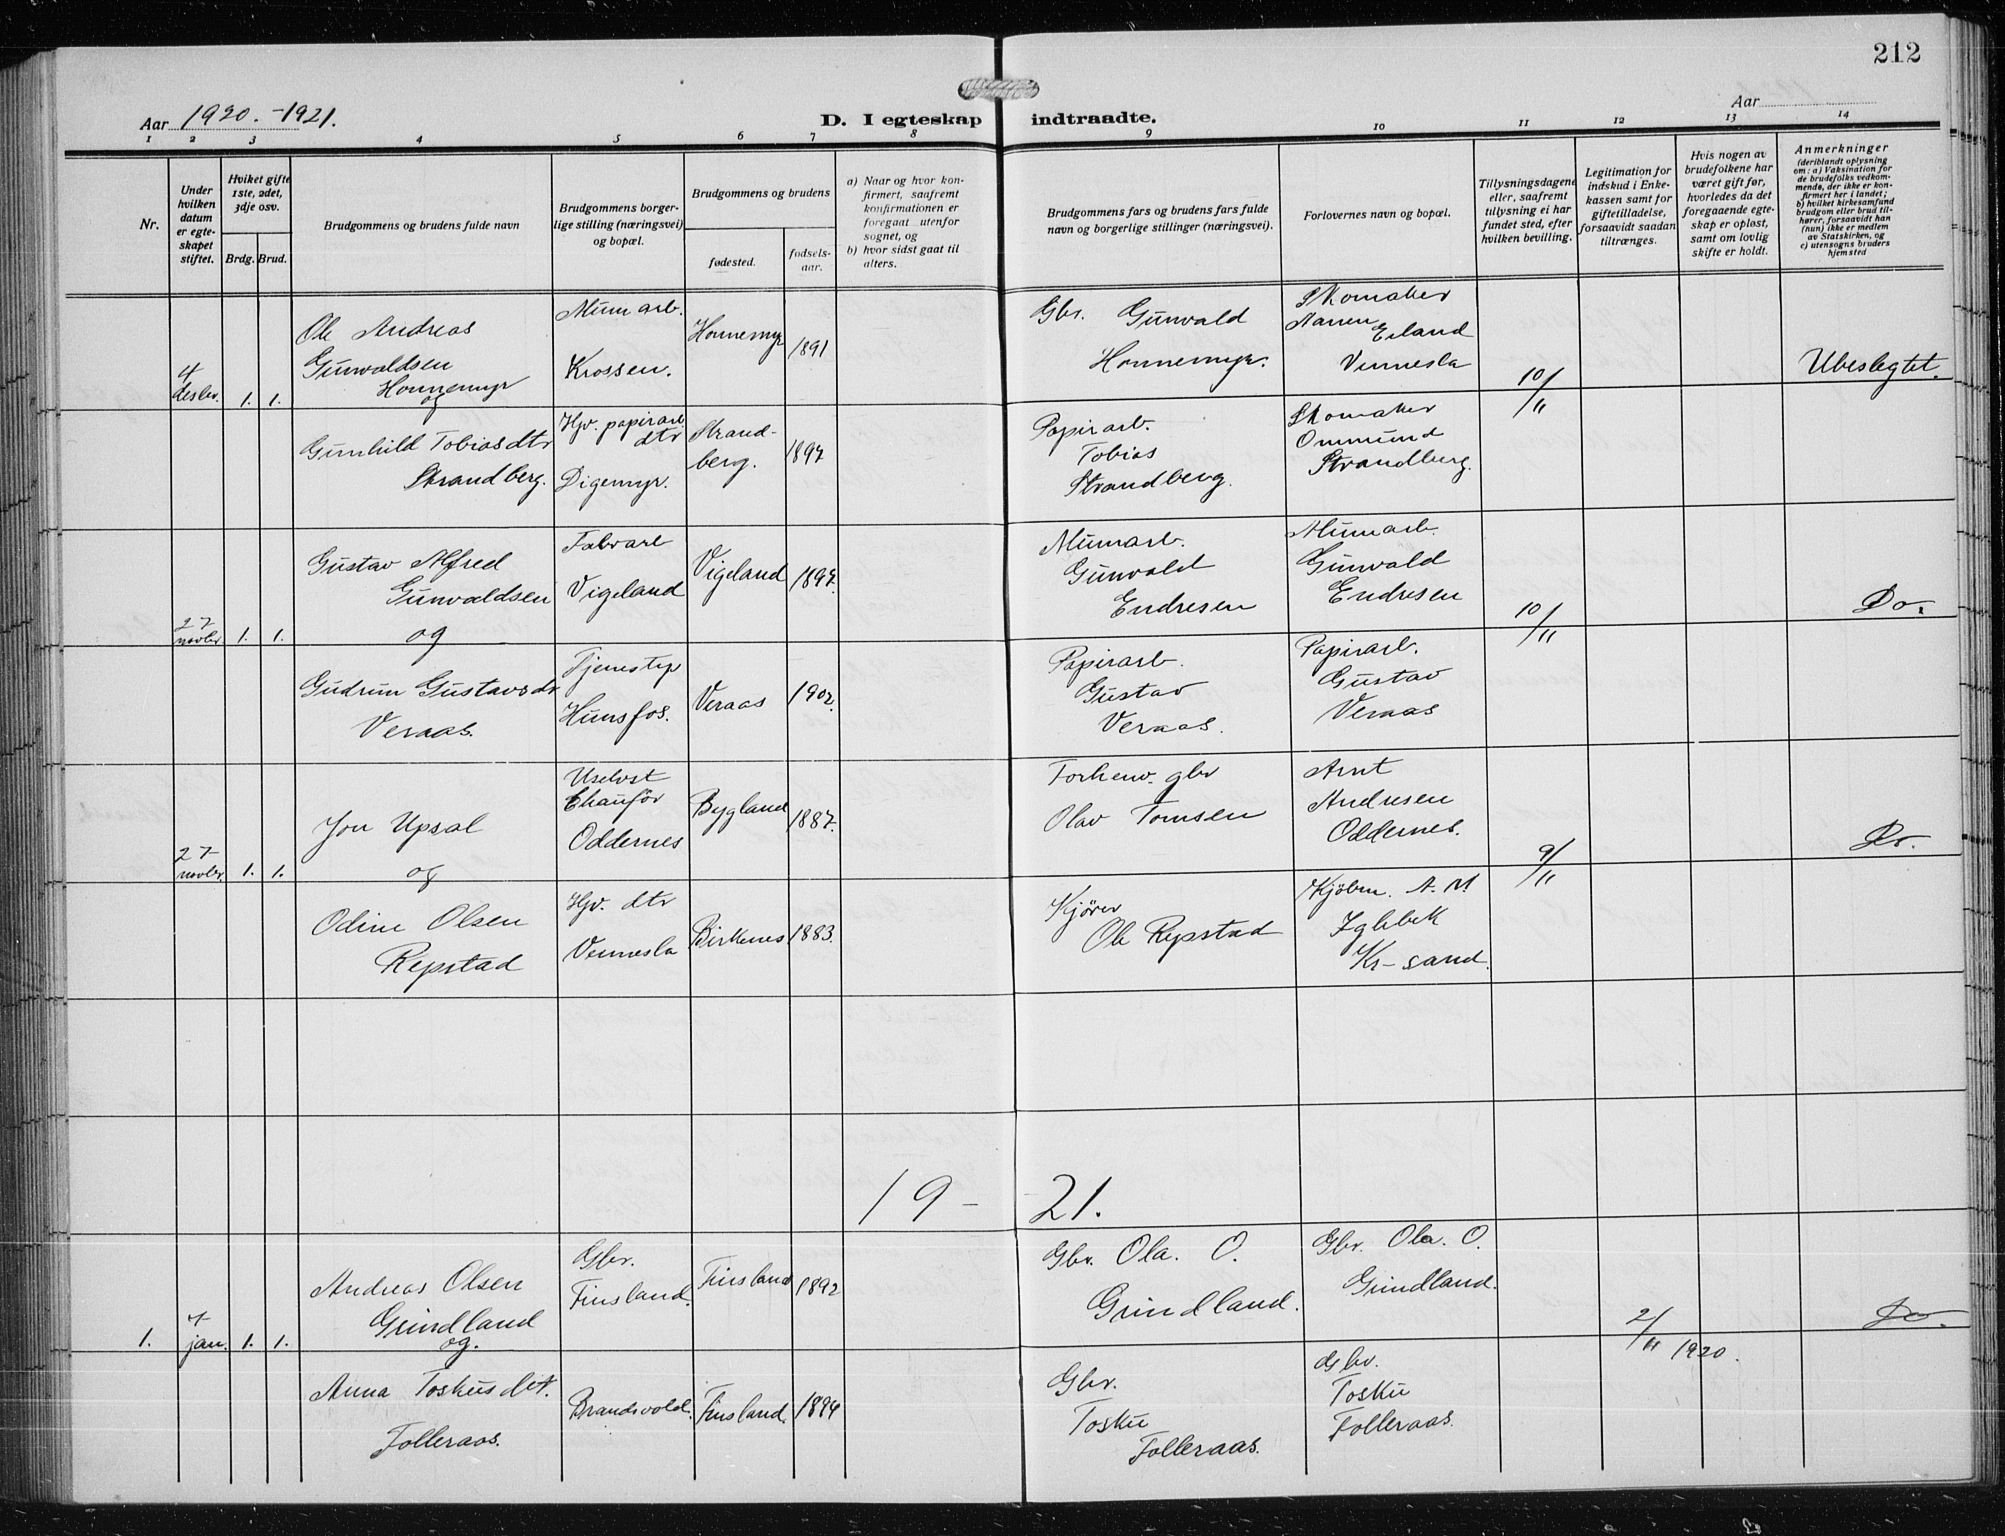 212
Aar 1920. - 1921.
D. I egteskap indtraadte.
Aar
1 2 3 4 5 6 7 8 9 10 11 12 13 14
Nr.
Under
hvilken
datum
er egte-
skapet
stiftet.
Hviket gifte
1ste, 2det,
3dje osv.
Brdg. Brud.
Brudgommens og brudens fulde navn
Brudgommens borger-
lige stilling (næringsvei)
og bopæl.
Brudgommens og brudens
fødested.
fødsels-
aar.
a) Naar og hvor kon-
firmert, saafremt
konfirmationen er
foregaat utenfor
sognet, og
b) hvor sidst gaat til
alters.
Brudgommens fars og brudens fars fulde
navn og borgerlige stillinger (næringsvei).
Forlovernes navn og bopæl.
Tillysningsdagene
eller, saafremt
tillysning ei har
fundet sted, efter
hvilken bevilling.
Legitimation for
indskud i Enke-
kassen samt for
giftetilladelse,
forsaavidt saadan
tiltrænges.
Hvis nogen av
brudefolkene har
været gift før,
hvorledes da det
foregaaende egte-
skap er opløst,
samt om lovlig
skifte er holdt.
Anmerkninger
(deriblandt oplysning
om: a) Vaksination for
de brudefolks vedkom-
mende, der ikke er kon-
firmert her i landet;
b) hvilket kirkesamfund
brudgom eller brud til-
hører, forsaavidt han
(hun) ikke er medlem
av Statskirken, og
c) utensogns bruders
hjemsted
4
desbr. 1. 1.
Ole Andreas
Gunvaldsen
Honnemyr
og
Murarb.
Krossen.
Honnemyr 1891
Gbr. Gunvald
Honnemyr.
Skomaker
Eiland
Vennesla
10/11
Ubeslegtet.
Gunhild Tobiasdtr
Strandberg.
Hjv. papirarb
dtr
Digemyr.
Strand-
berg. 1897
Papirarb.
Tobias
Strandberg.
Skomaker
Ommund
Strandberg.
27
novbr. 1. 1.
Gustav Alfred
Gunvaldsen
og
Fabrarb
Vigeland
Vigeland 1897.
Murarb.
Gunvald
Endresen
Murarb.
Gunvald
Endresen
10/11
Do.
Gudrun Gustavsdtr
Veraas.
Tjenestep
Hunsfos.
Veraas 1902.
Papirarb.
Gustav
Veraas.
Papirarb.
Gustav
Veraas
27
novbr. 1. 1.
Jon Upsal
og
Uselvst
Chauför
Oddernes
Bygland 1887.
Forhenv. gbr
Olav Tomsen
Arnt
Andresen
Oddernes.
9/11
Do.
Odine Olsen
Repstad
Hjv. dtr
Vennesla
Birkenes 1883.
Kjörer
Ole Repstad
Kjöbm. A. M.
Iglebek
Kr-sand.
19-21.
1. 4
jan. 1. 1.
Andreas Olsen
Grindland
og.
Gbr.
Finsland.
Finsland 1892
Gbr. Ola. O.
Grindland.
Gbr. Ola. O.
Grindland.
2/11 1920.
Do.
Anna Toskesdet.
Folleraas.
Brandsvold.
Finsland. 1894
Gbr.
Toske
Folleraas.
Gbr.
Toske
Folleraas.